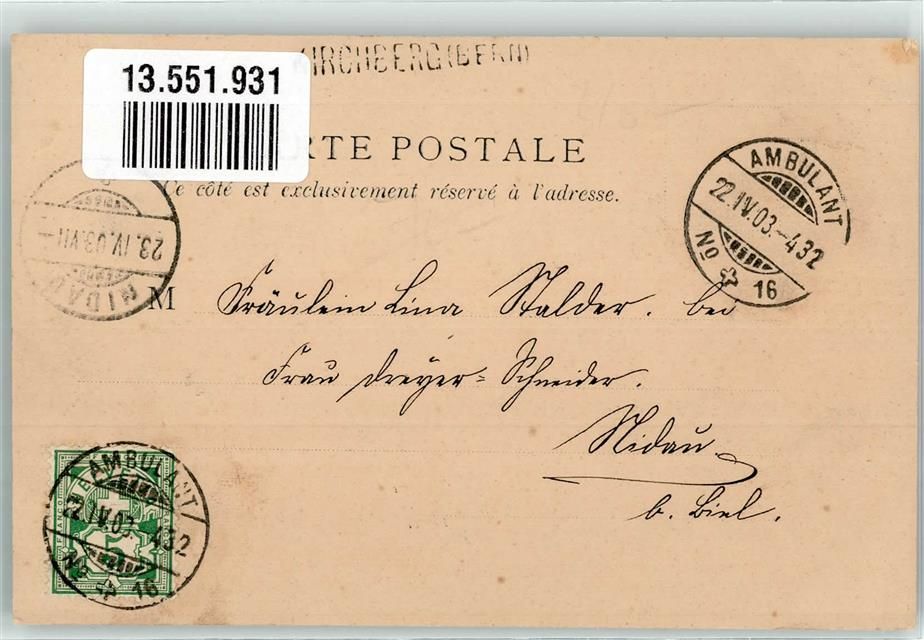 KIRCHBERG (BERN)
13.551.931
RTE POSTALE
Ce côté est exclusivement réservé à l'adresse.
AMBULANT
22.IV.03.-432
No 16
23.IV.03.VII-
NIDAU
M Fräulein Lina Stalder. bei
Frau Dreyer-Schneider.
Nidau
b. Biel.
AMBULANT
22.IV.03.-432
No 16
5